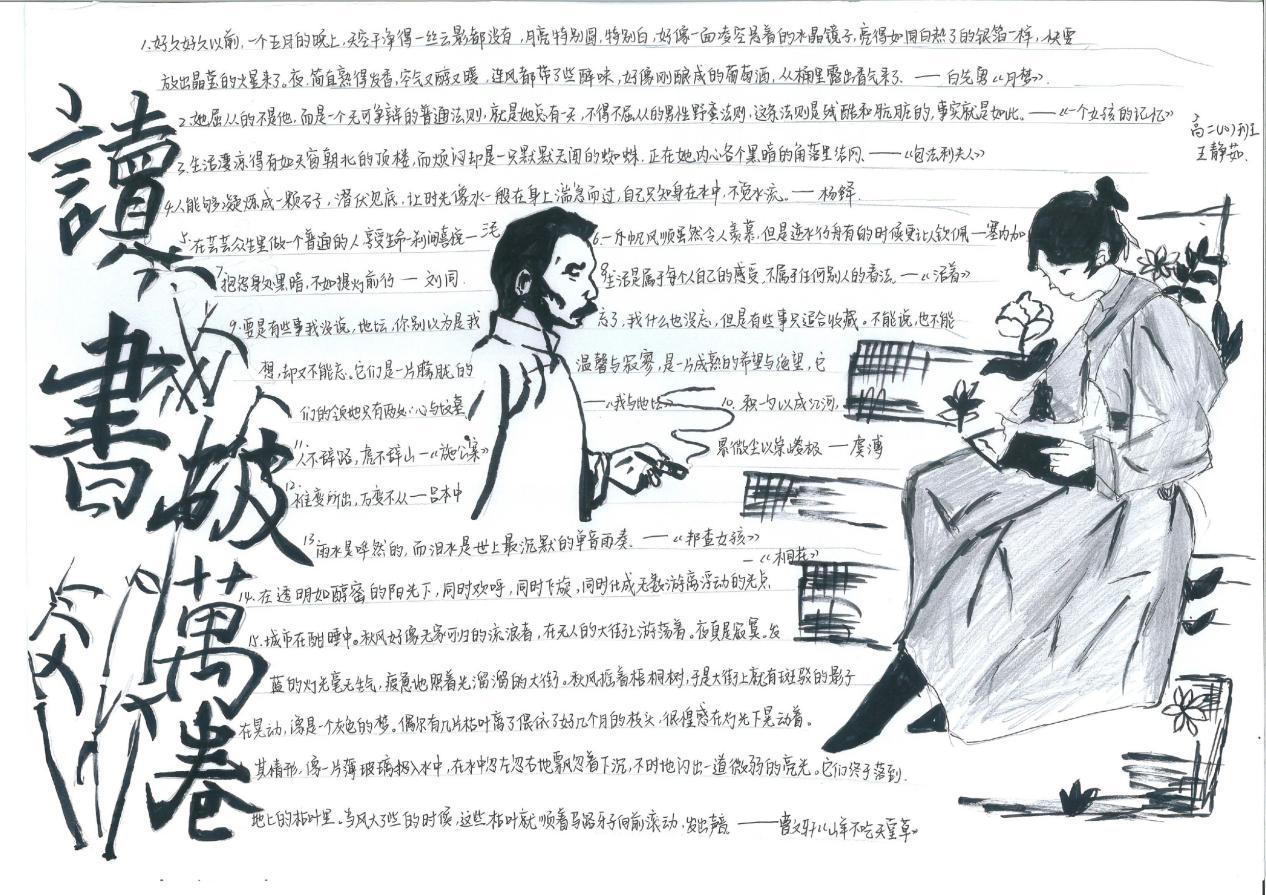 讀書破萬卷
1.好久好久以前,一个五月的晚上,天空干净得一丝云影都没有,月亮特别圆,特别白,好像一面凌空悬着的水晶镜子,亮得如同白热了的银箔一样,快要
放出晶莹的火星来了。夜,简直熟得发香,空气又醇又暖,连风都带了些醉味,好像刚酿成的葡萄酒,从桶里露出香气来了.——白先勇《月梦》.
2.她屈从的不是他,而是一个无可争辩的普通法则,就是她总有一天,不得不屈从的男性野蛮法则,这条法则是残酷和肮脏的,事实就是如此.——《一个女孩的记忆》
高二(1)班
王静茹.
3.生活凄凉得有如天窗朝北的顶楼,而烦闷却是一只默默无闻的蜘蛛.正在她内心各个黑暗的角落里结网.——《包法利夫人》
4.人能够凝炼成一颗石子,潜伏见底,让时光像水一般在身上湍急而过,自己只知身在水中,不觉水流.——杨绛.
5.在芸芸众生里做一个普通的人享受生命刹间喜悦—
6.一帆风顺虽然令人羡慕,但是逆水行舟有的时候更让人钦佩—墨菲
7.抱怨身处黑暗,不如提灯前行—刘同.
8.生活是属于每个人自己的感受,不属于任何别人的看法.—《活着》
9.要是有些事我没说,地坛,你别以为是我忘了,我什么也没忘,但是有些事只适合收藏。不能说,也不能
想,却又不能忘.它们是一片朦胧的温馨与寂寥,是一片成熟的希望与绝望,它
们的领地只有两处:心与坟墓.——《我与地坛》
10.积一勺以成江河,
累微尘以崇峻极——虞溥
11.人不辞路,虎不辞山—《施公案》
12.惟变所出,万变不从—吕本中
13.雨水是哗然的,而泪水是世上最沉默的单音雨奏.——《邦查女孩》
14.在透明如醇蜜的阳光下,同时欢呼,同时飞旋,同时化成无数游离浮动的光点.
—《桐花》
15.城市在酣睡中。秋风好像无家可归的流浪者,在无人的大街上游荡着。夜真是寂寞。发
蓝的灯光毫无生气,疲惫地照着光溜溜的大街。秋风摇着梧桐树,于是大街上就有斑驳的影子
在晃动,像是一个灰色的梦。偶尔有几片枯叶离了偎依了好几个月的枝头,很惶惑在灯光下晃动着。
其情形,像一片薄玻璃扔入水中,在水中忽左忽右地飘忽着下沉,不时地闪出一道微弱的亮光。它们终于落到.
地上的枯叶里。当风大了些的时候,这些枯叶就顺着马路牙子向前滚动,发出声音——曹文轩《山羊不吃天堂草》